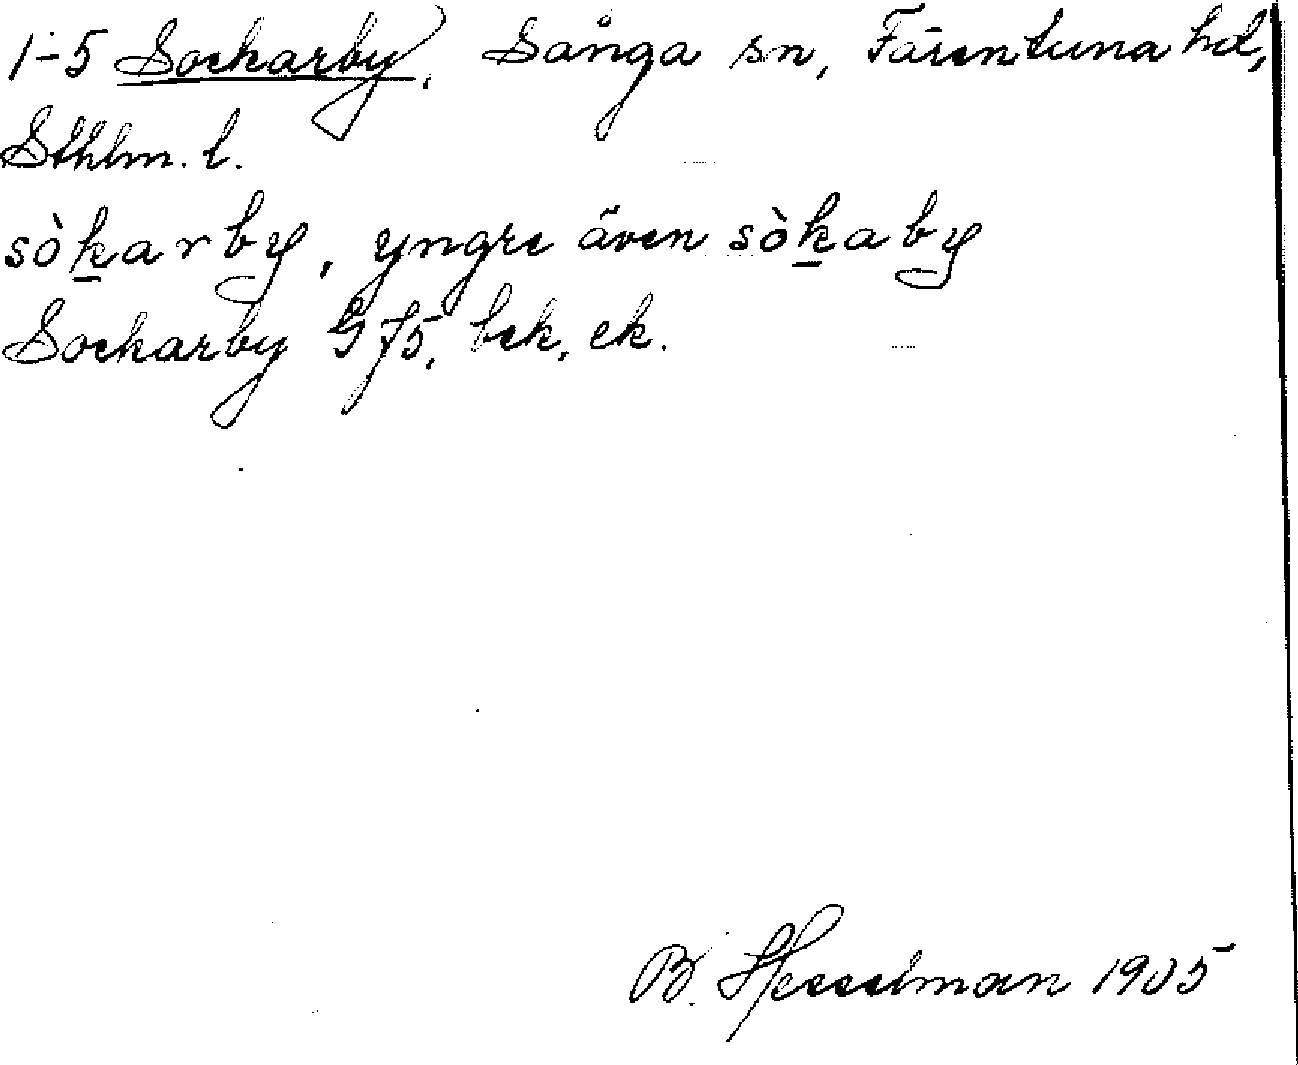 1-5 Sockarby, Sånga sn, Färentuna hd,
Sthlm. l.
sòkarby, yngre även sòkaby
Sockarby G f5, bek, ek.
B. Hesselman 1905